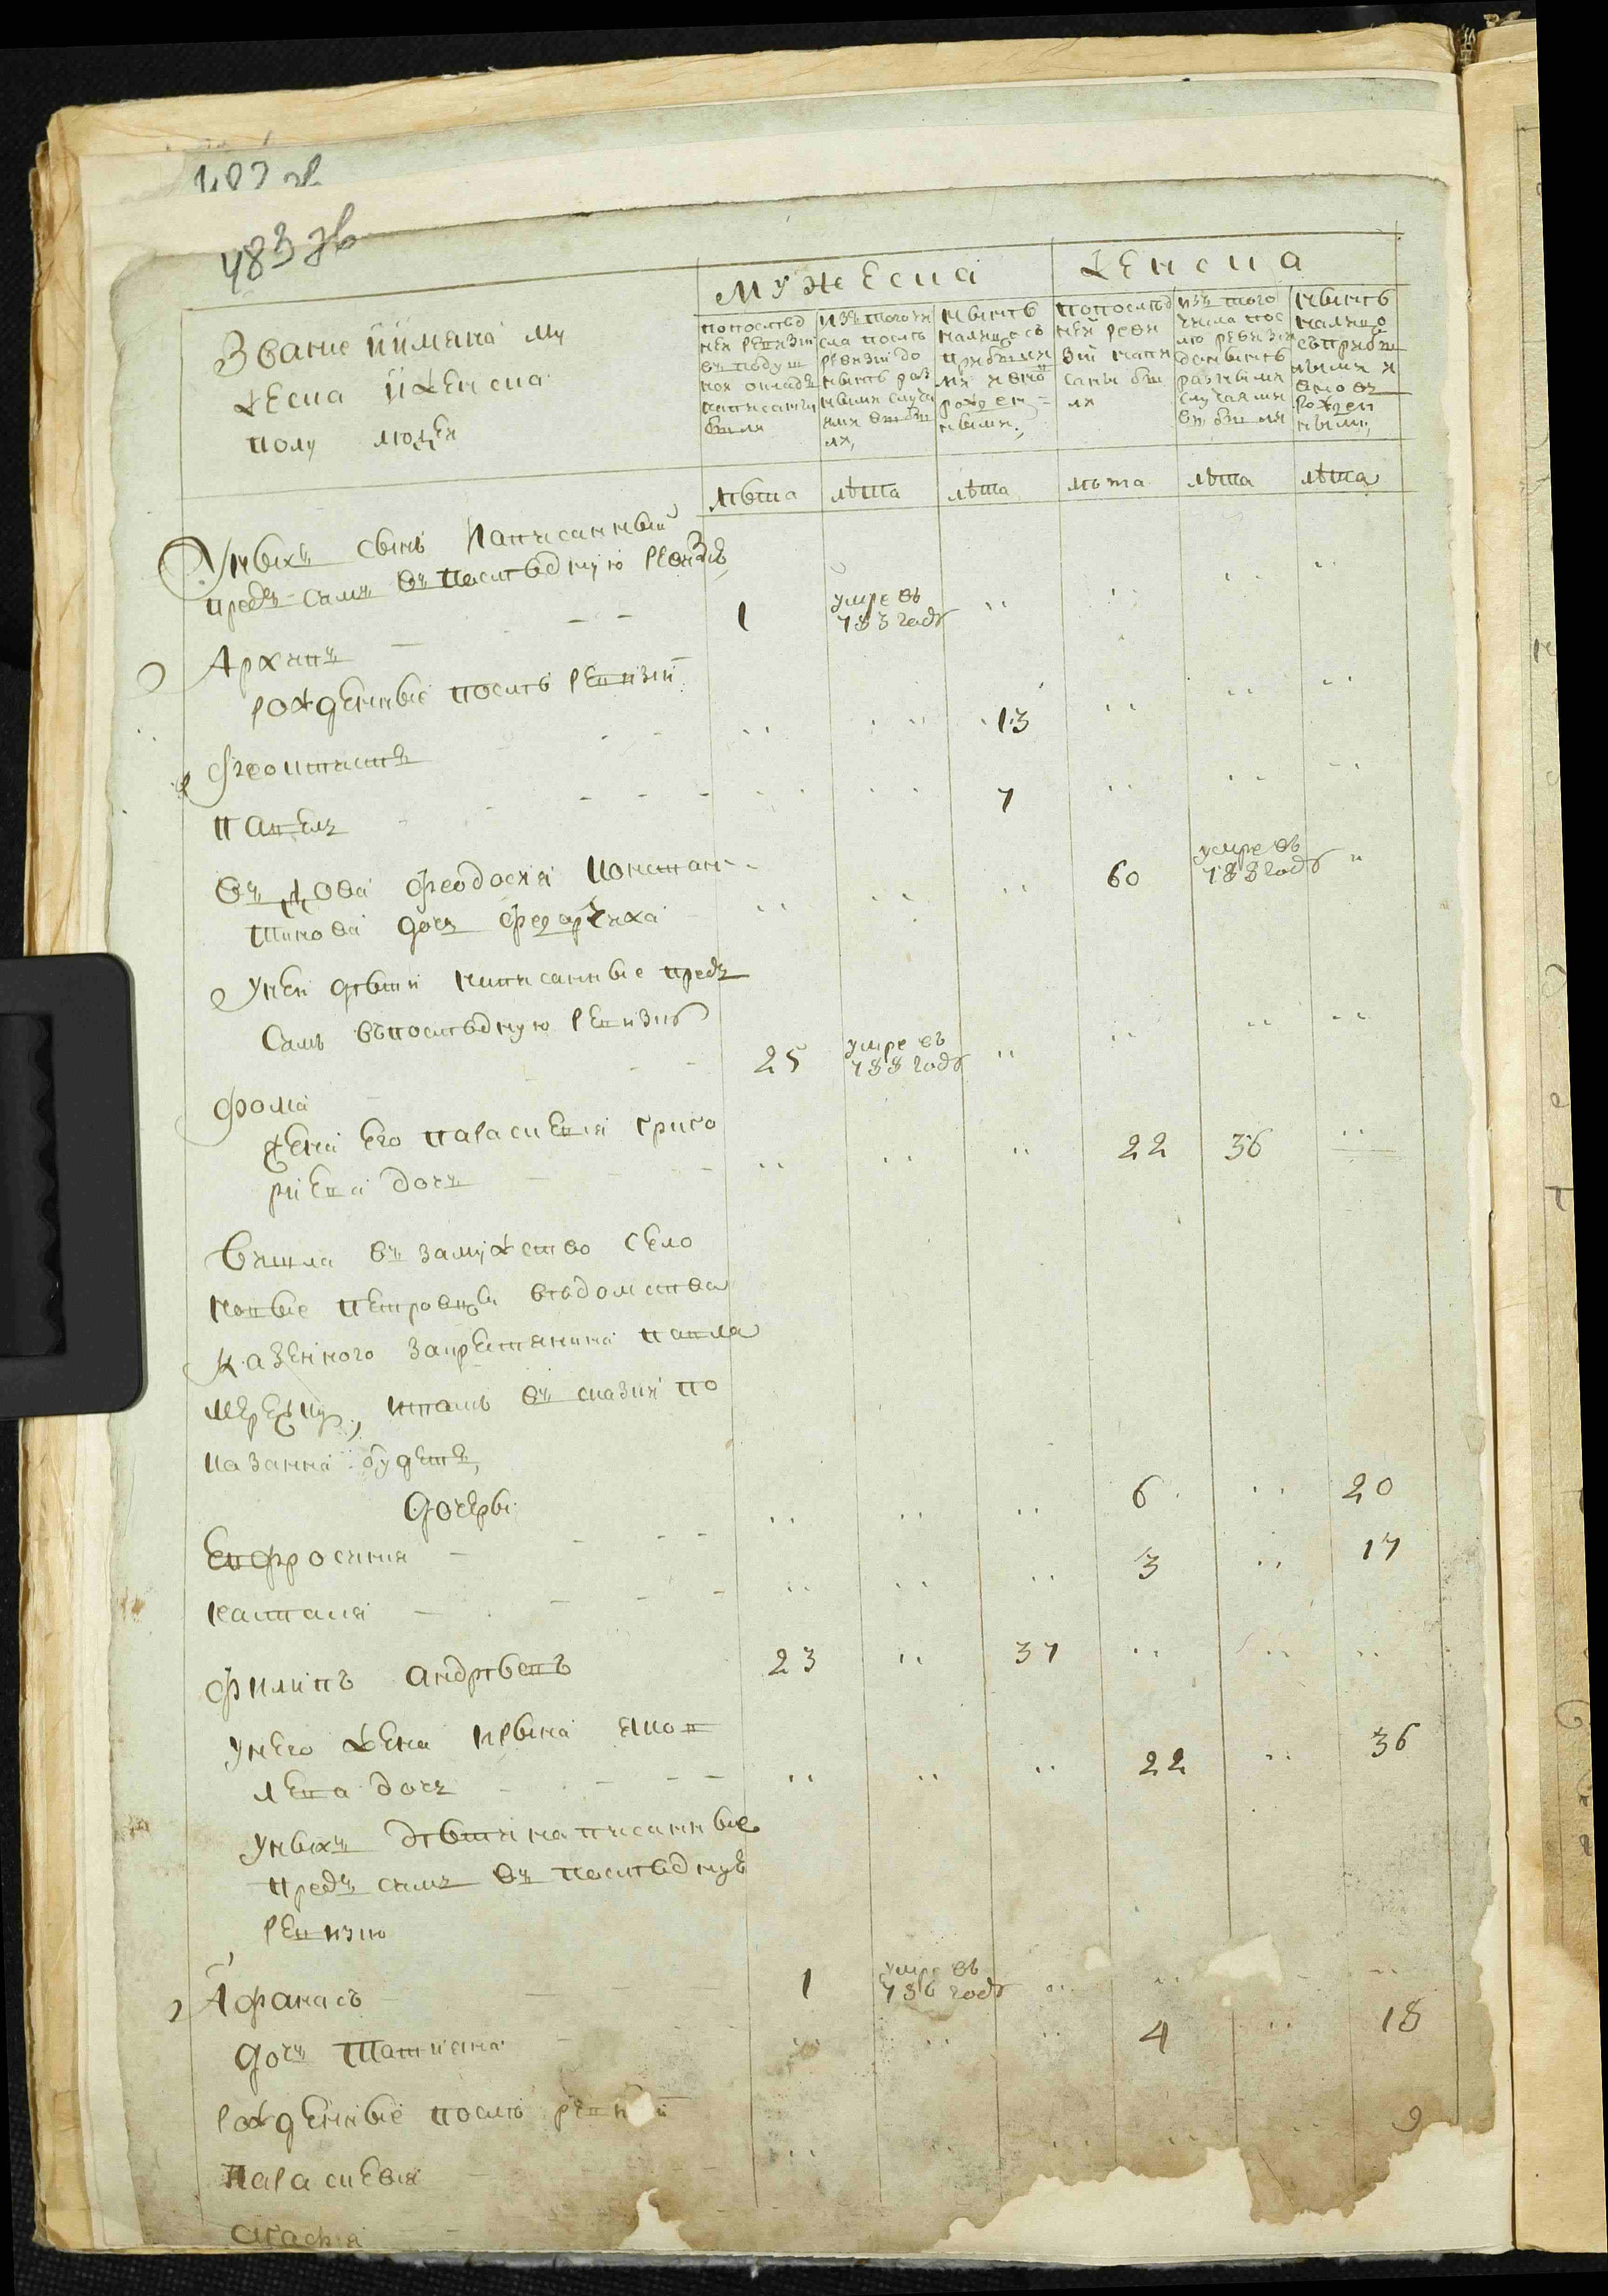 483 зв
Мужеска
Женска
Звание и имяна му
жеска и женска
полу людей
попослед
ней ревизии
въ подуш
ной окладъ
написаны
были
изъ того чи
сла после
ревизии до
ныне раз
ными случа
ями выбы
ли,
ныне
налицо съ
прибыли
ми и вно
рожден=
ными,
попослед
ней реви
зии напи
саны бы
ли
изъ того
числа пос
ле ревизии
доныне
разными
случаями
выбыли
ныне
налицо
съ прибы
лыми и
вновь
рожден
ными,
лѣта лѣта лѣта лѣта лѣта лѣта
У ныхъ сынъ написанный
предъ симъ въ последную ревизію
Архипъ 1 умре въ 783 годѣ
рожденные после ревизии
Феоктистъ 13
Павелъ 7
Вдова Феодосия Констан-
тинова дочь Федорчиха 60 умре въ 788 годѣ
У ней дети написанные предъ
симъ въ последную ревизию
Фома 25 умре въ 788 годѣ
жена его Параскевия Григо
риева дочь 22 36
Вышла въ замужство село
Новые Петровцы ведомства
казенного за крестянина Павла
, и тамъ въ сказки по
казанна будетъ,
дочеры
Евфросиния 6 20
Наталия 3 17
Филипъ Андреевъ 23 37
У него жена Ирына Яков
лева дочь 22 36
У ныхъ дети написанные
предъ симъ въ последную
ревизию
Афанасъ 1 умре въ 786 годѣ
дочь Татияна 4 18
рожденные после ревизии
Параскевия 9
Агафия